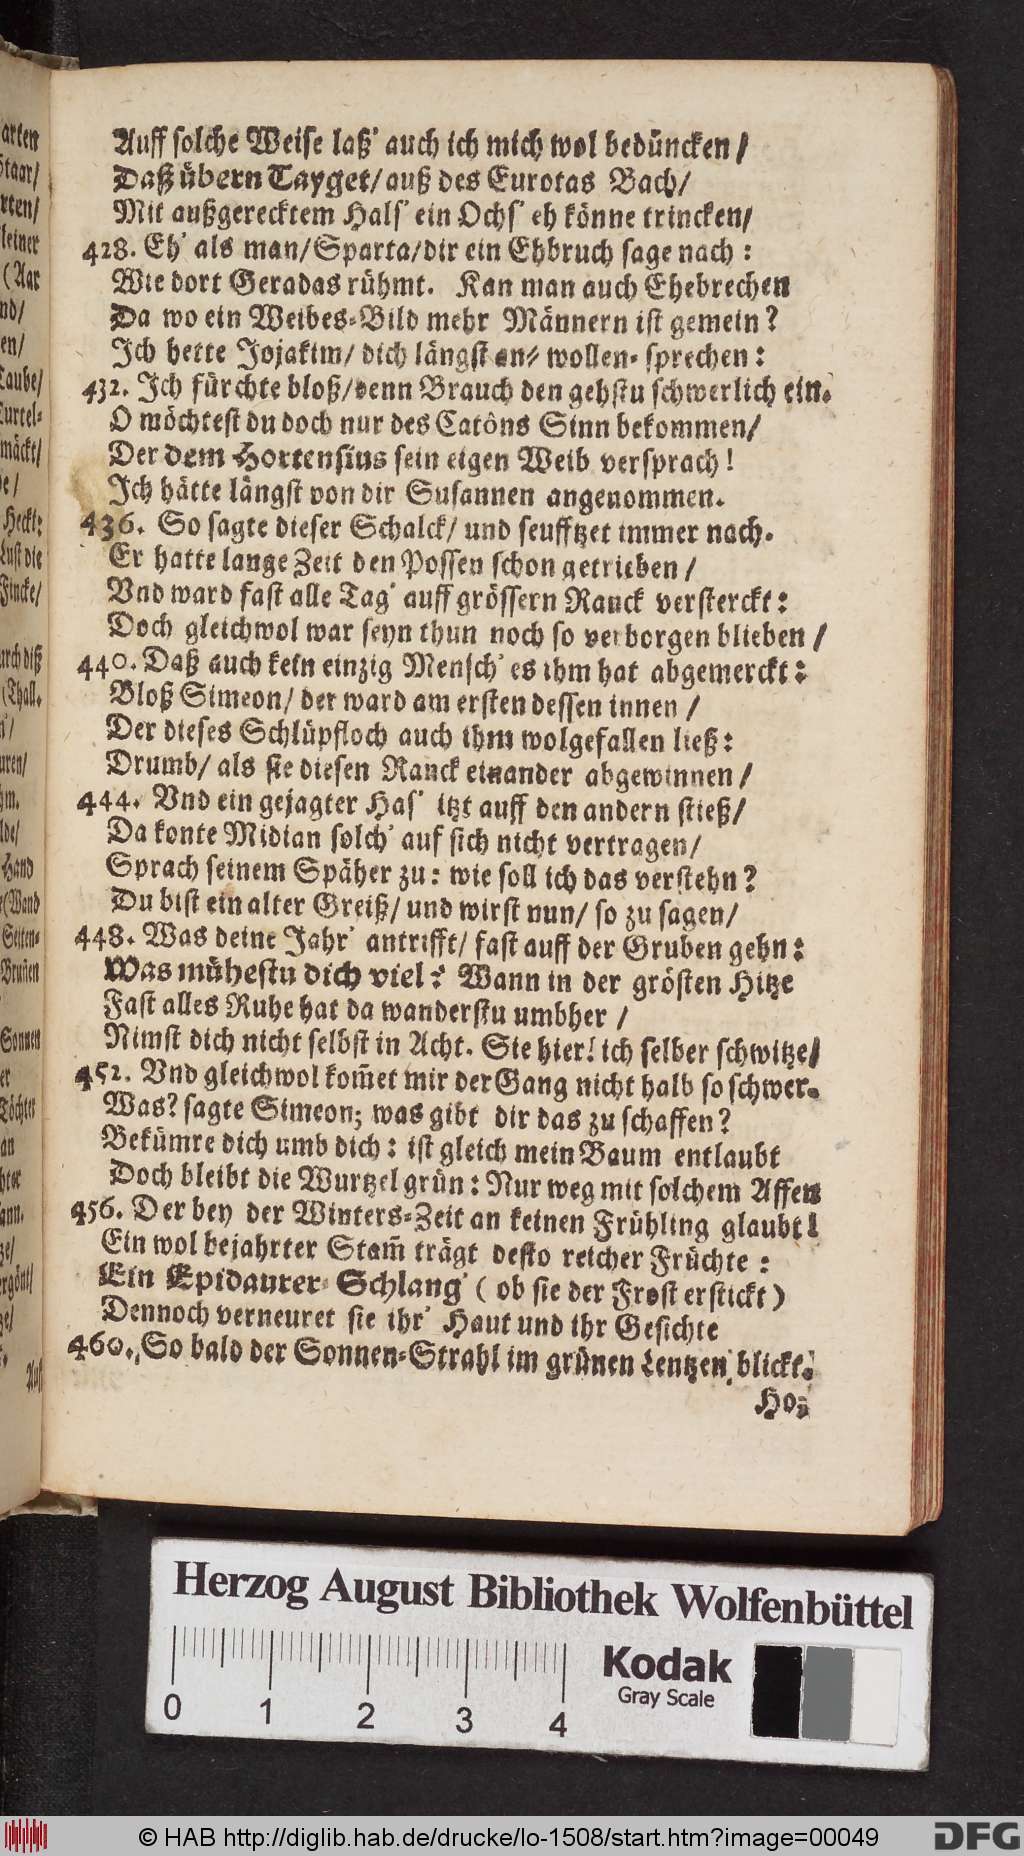 Auff solche Weise laß' auch ich mich wol bedüncken /
Daß übern Tayget / auß des Eurotas Bach /
Mit außgerecktem Hals' ein Ochs' eh könne trincken /
428. Eh' als man / Sparta / dir ein Ehbruch sage nach :
Wie dort Geradas rühmt. Kan man auch Ehebrechen
Da wo ein Weibes-Bild mehr Männern ist gemein ?
Ich hette Jojakim / dich längst an- wollen- sprechen :
432. Ich fürchte bloß / denn Brauch den gehstu schwerlich ein.
O möchtest du doch nur des Catôns Sinn bekommen /
Der dem Hortensius sein eigen Weib versprach !
Ich hätte längst von dir Susannen angenommen.
436. So sagte dieser Schalck / und seufftzet immer nach.
Er hatte lange Zeit den Possen schon getrieben /
Vnd ward fast alle Tag' auff grössern Ranck versterckt :
Doch gleichwol war seyn thun noch so verborgen blieben /
440. Daß auch kein einzig Mensch' es ihm hat abgemerckt :
Bloß Simeon / der ward am ersten dessen innen /
Der dieses Schlüpfloch auch ihm wolgefallen ließ :
Drumb / als sie diesen Ranck einander abgewinnen /
444. Vnd ein gejagter Has' itzt auff den andern stieß /
Da konte Midian solch' auf sich nicht vertragen /
Sprach seinem Späher zu : wie soll ich das verstehn ?
Du bist ein alter Greiß / und wirst nun / so zu sagen /
448. Was deine Jahr' antrifft / fast auff der Gruben gehn :
Was mühestu dich viel ? Wann in der grösten Hitze
Fast alles Ruhe hat da wanderstu umbher /
Nimst dich nicht selbst in Acht. Sie hier! ich selber schwitze /
452. Vnd gleichwol kom̃et mir der Gang nicht halb so schwer.
Was? sagte Simeon; was gibt dir das zu schaffen ?
Bekümre dich umb dich : ist gleich mein Baum entlaubt
Doch bleibt die Wurtzel grün : Nur weg mit solchem Affen
456. Der bey der Winters-Zeit an keinen Frühling glaubt !
Ein wol bejahrter Stam̃ trägt desto reicher Früchte :
Ein Epidaurer Schlang' ( ob sie der Frost erstickt )
Dennoch verneuret sie ihr' Haut und ihr Gesichte
460. So bald der Sonnen-Strahl im grünen Lentzen blickt.
arten
Staar/
rten/
leiner
(Aar
nd/
en/
Taube/
Turtel-
mäckt/
de /
Heckt:
Lust die
Fincke/
urch diß
(Thall.
n' /
uren/
hm.
lde/
Hand
(Wand
Seiten-
Brunen
Sonnen
er
Töchter
an
hter
ann.
ze/
ergönt/
ze/
Auff
Herzog August Bibliothek Wolfenbüttel
0 1 2 3 4
Kodak
Gray Scale
© HAB http://diglib.hab.de/drucke/lo-1508/start.htm?image=00049
DFG